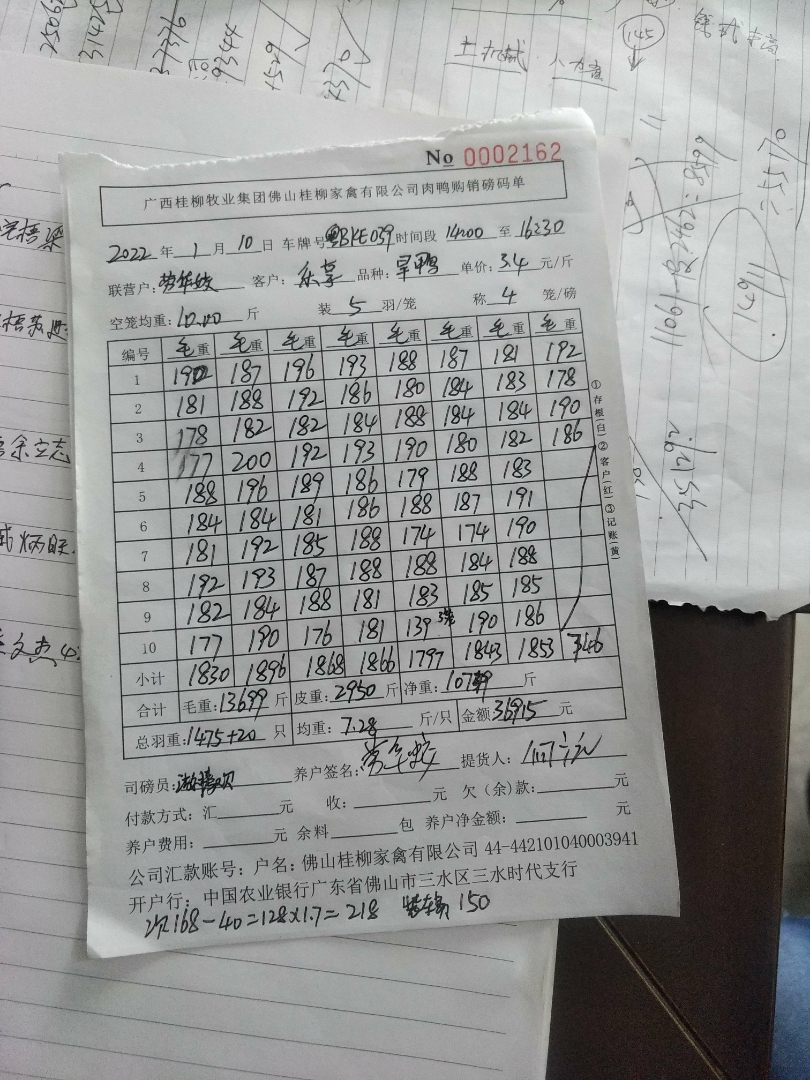 145
土机械
No 0002162
广西桂柳牧业集团佛山桂柳家禽有限公司肉鸭购销磅码单
2022 年 1 月 10 日 车牌号 粤BKE039 时间段 14:00 至 16:30
联营户: 客户: 乐享 品种: 旱鸭 单价: 3.4 元/斤
空笼均重: 10.00 斤 装 5 羽/笼 称 4 笼/磅
编号 毛重 毛重 毛重 毛重 毛重 毛重 毛重 毛重
1 190 187 196 193 188 187 181 192
2 181 188 192 186 180 184 183 178
3 178 182 182 184 188 184 184 190
4 177 200 192 193 190 180 182 186
5 188 196 189 186 179 188 183
6 184 184 181 186 188 187 191
7 181 192 185 188 174 174 190
8 192 193 187 188 188 184 188
9 182 184 188 181 183 185 185
10 177 190 176 181 139 3笼 190 186
小计 1830 1896 1868 1866 1797 1843 1853 746
合计 毛重: 13699 斤 皮重: 2950 斤 净重: 斤
总羽重: 1475+20 只 均重: 7.28 斤/只 金额: 36915 元
①存根(白)②客户(红)③记账(黄)
司磅员: 养户签名: 提货人:
付款方式: 汇 元 收: 元 欠(余)款: 元
养户费用: 元 余料 包 养户净金额: 元
公司汇款账号: 户名: 佛山桂柳家禽有限公司 44-442101040003941
开户行: 中国农业银行广东省佛山市三水区三水时代支行
168-40=128×1.7=218 150